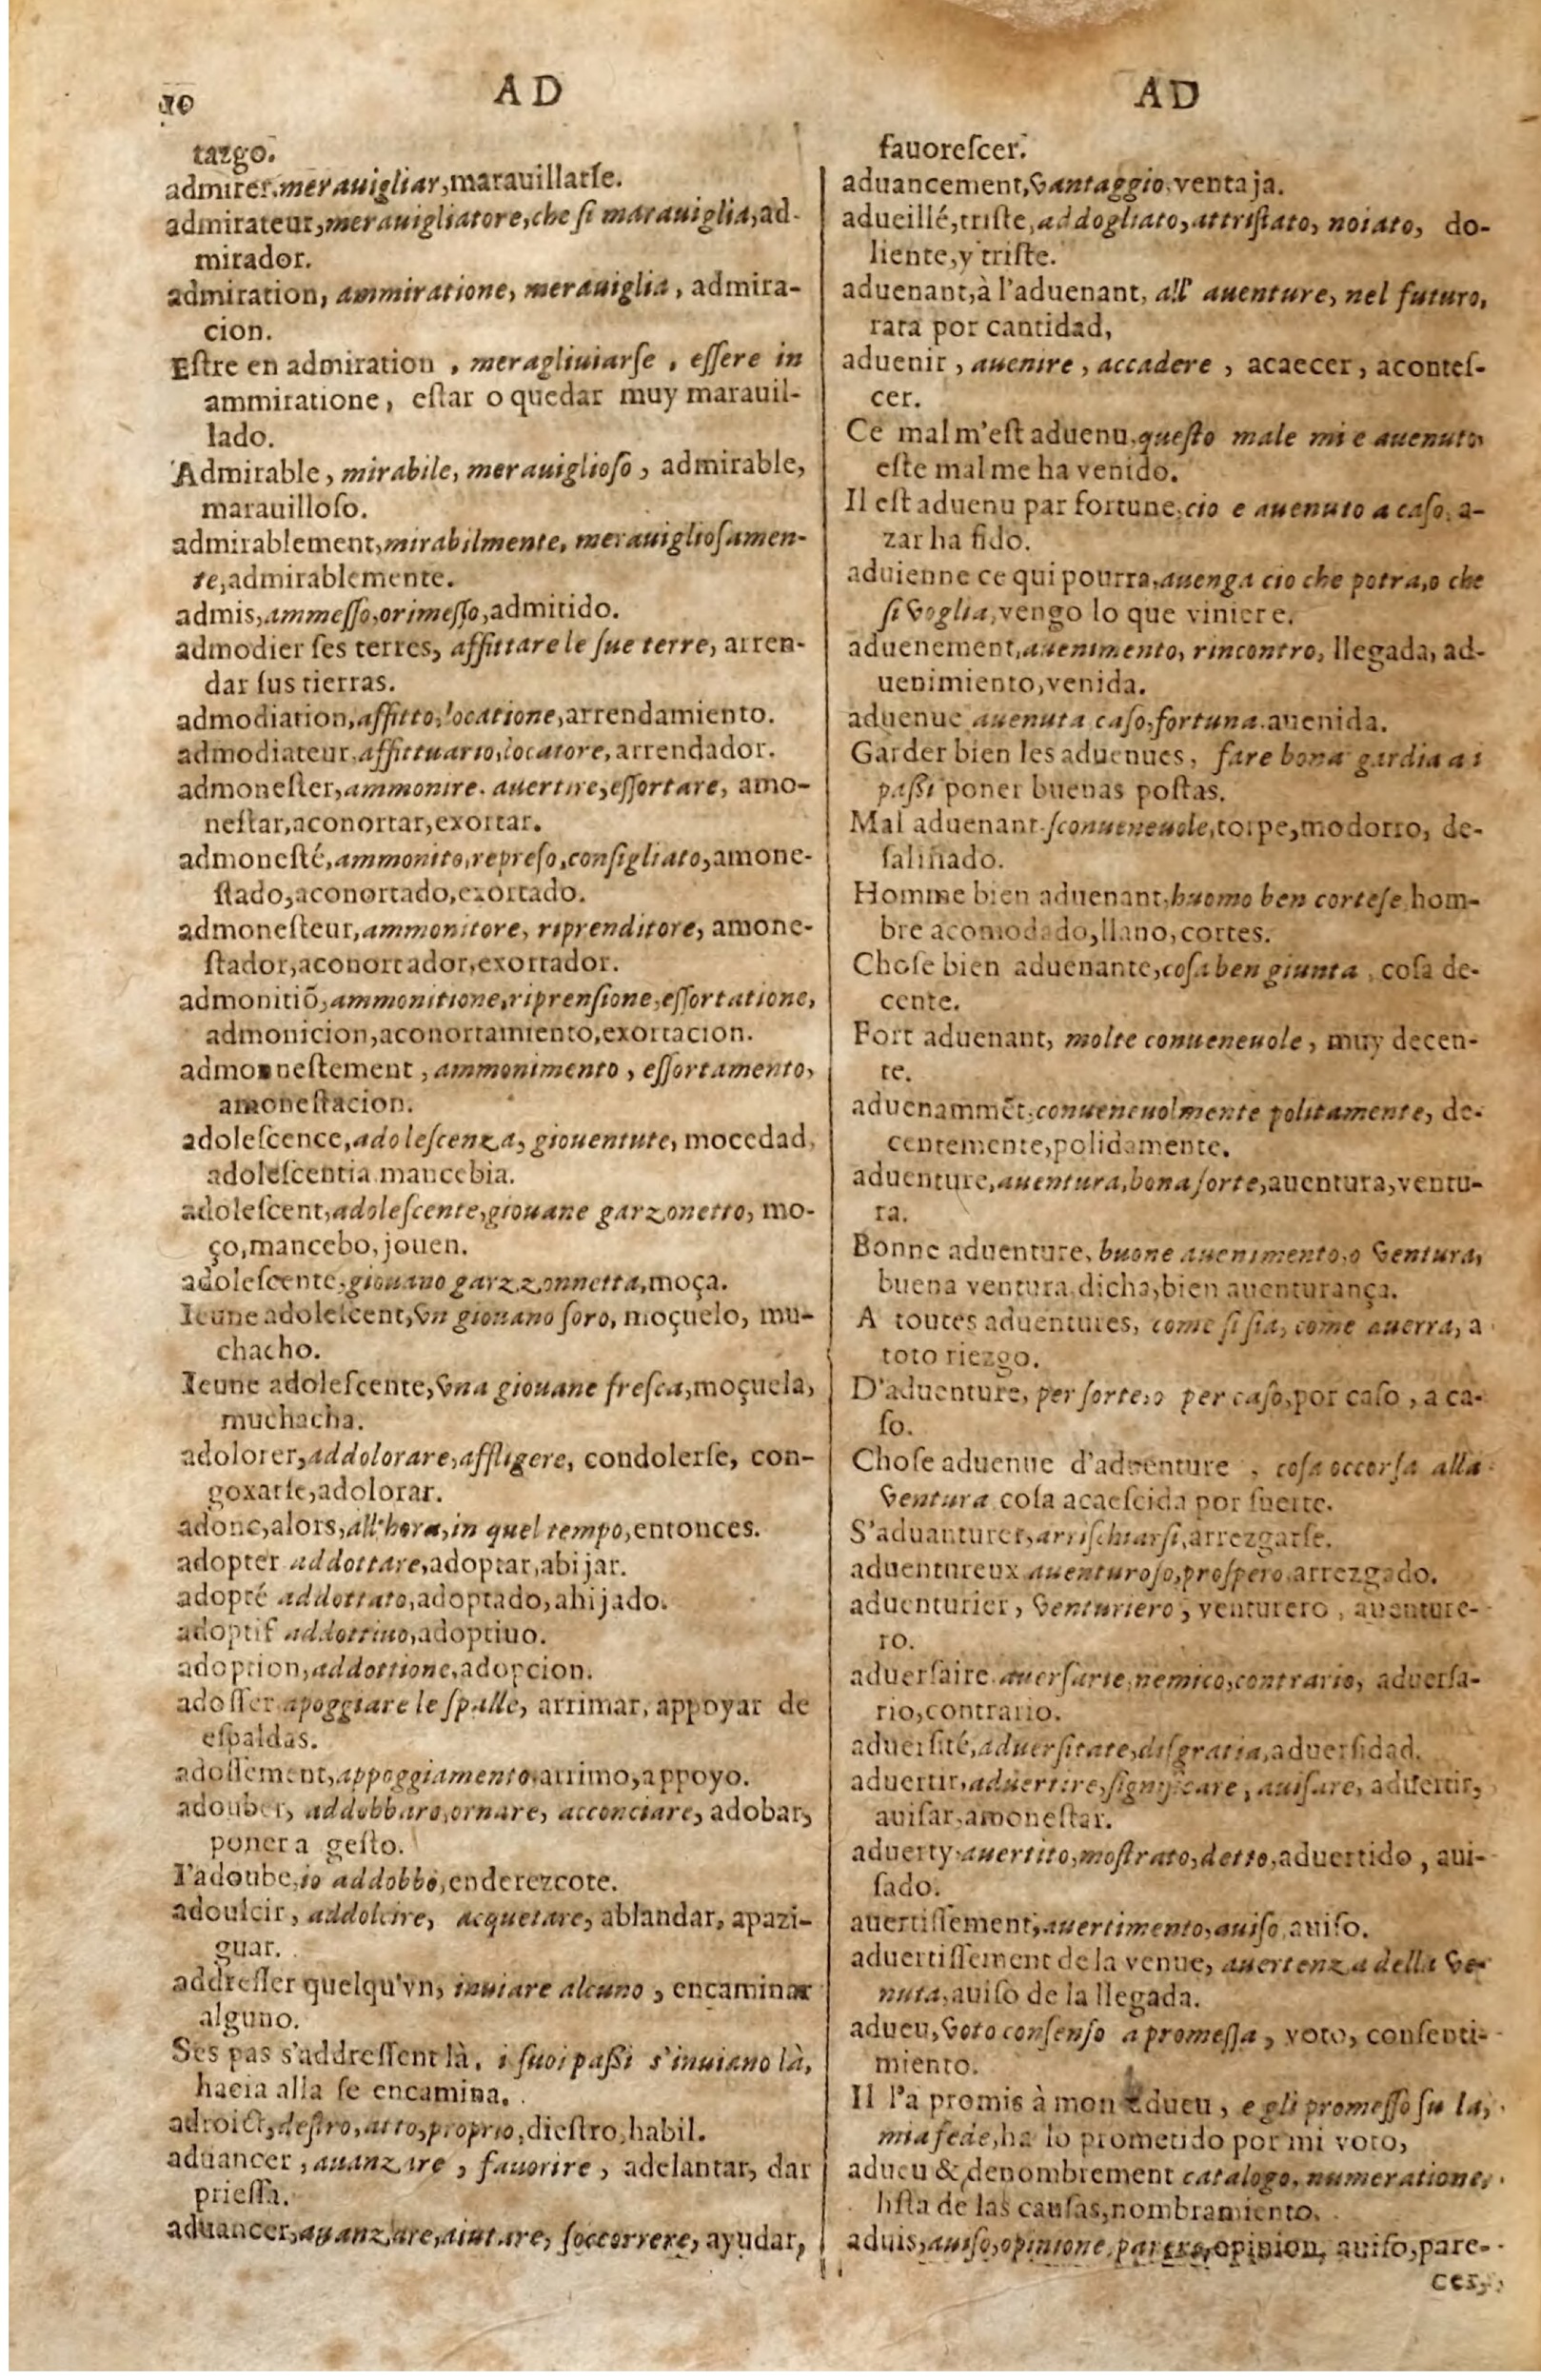 10
AD
AD
tazgo.
admirer, merauigliar, marauillarſe.
admirateur, merauigliatore, che ſi marauiglia, ad-
mirador.
admiration, ammiratione, merauiglia, admira-
cion.
Eſtre en admiration, meragliuiarſe, eſſere in
ammiratione, eſtar o quedar muy marauil-
lado.
Admirable, mirabile, merauiglioſo, admirable,
marauilloſo.
admirablement, mirabilmente, merauiglioſamen-
te, admirablemente.
admis, ammeſſo, o rimeſſo, admitido.
admodier ſes terres, affittare le ſue terre, arren-
dar ſus tierras.
admodiation, affitto, locatione, arrendamiento.
admodiateur, affittuario, locatore, arrendador.
admoneſter, ammonire. auertire, eſſortare, amo-
neſtar, aconortar, exortar.
admoneſté, ammonito, repreſo, conſigliato, amone-
ſtado, aconortado, exortado.
admoneſteur, ammonitore, riprenditore, amone-
ſtador, aconortador, exortador.
admonitiõ, ammonitione, riprenſione, eſſortatione,
admonicion, aconortamiento, exortacion.
admonneſtement, ammonimento, eſſortamento,
amoneſtacion.
adoleſcence, adoleſcenza, giouentute, mocedad,
adoleſcentia mancebia.
adoleſcent, adoleſcente, giouane garzonetto, mo-
ço, mancebo, jouen.
adoleſcente, giouano garzzonnetta, moça.
Ieune adoleſcent, vn giouano ſoro, moçuelo, mu-
chacho.
Ieune adoleſcente, vna giouane freſca, moçuela,
muchacha.
adolorer, addolorare, affligere, condolerſe, con-
goxarſe, adolorar.
adonc, alors, all'hora, in quel tempo, entonces.
adopter addottare, adoptar, abijar.
adopté addottato, adoptado, ahijado.
adoptif addottiuo, adoptiuo.
adoption, addottione, adopcion.
adoſſer apoggiare le ſpalle, arrimar, appoyar de
eſpaldas.
adoſſement, appoggiamento, arrimo, appoyo.
adouber, addobbaro, ornare, acconciare, adobar,
poner a geſto.
I'adoube, io addobbo, enderezcote.
adoulcir, addolcire, acquetare, ablandar, apazi-
guar.
addreſſer quelqu'vn, inuiare alcuno, encaminar
alguno.
Ses pas s'addreſſent là, i ſuoi paſſi s'inuiano là,
hacia alla ſe encamina.
adroict, deſtro, atto, proprio, dieſtro, habil.
aduancer, auanzare, fauorire, adelantar, dar
prieſſa.
aduancer, auanzare, aiutare, ſoccorrere, ayudar,
fauoreſcer.
aduancement, vantaggio, ventaja.
adueillé, triſte, addogliato, attriſtato, noiato, do-
liente, y triſte.
aduenant, à l'aduenant, all' auenture, nel futuro,
rata por cantidad,
aduenir, auenire, accadere, acaecer, aconteſ-
cer.
Ce mal m'eſt aduenu, queſto male mi e auenuto,
eſte mal me ha venido.
Il eſt aduenu par fortune, cio e auenuto a caſo, a-
zar ha ſido.
aduienne ce qui pourra, auenga cio che potra, o che
ſi voglia, vengo lo que viniere.
aduenement, auenimento, rincontro, llegada, ad-
uenimiento, venida.
aduenue auenuta caſo, fortuna. auenida.
Garder bien les aduenues, fare bona gardia a i
paſſi poner buenas poſtas.
Mal aduenant. ſconueneuole, torpe, modorro, de-
ſaliñado.
Homme bien aduenant, huomo ben corteſe hom-
bre acomodado, llano, cortes.
Choſe bien aduenante, coſa ben giunta, coſa de-
cente.
Fort aduenant, molte conueneuole, muy decen-
te.
aduenammẽt, conueneuolmente politamente, de-
centemente, polidamente.
aduenture, auentura, bona ſorte, auentura, ventu-
ra.
Bonne aduenture, buone auenimento, o ventura,
buena ventura, dicha, bien auenturança.
A toutes aduentures, come ſi ſia, come auerra, a
toto riezgo.
D'aduenture, per ſorte, o per caſo, por caſo, a ca-
ſo.
Choſe aduenue d'aduenture, coſa occorſa alla
ventura coſa acaeſcida por ſuerte.
S'aduanturer, arriſchiarſi, arrezgarſe.
aduentureux auenturoſo, proſpero arrezgado.
aduenturier, venturiero, venturero, auenture-
ro.
aduerſaire auerſarie, nemico, contrario, aduerſa-
rio, contrario.
aduerſité, aduerſitate, diſgratia, aduerſidad.
aduertir, aduertire, ſignificare, auiſare, aduertir,
auiſar, amoneſtar.
aduerty auertito, moſtrato, detto, aduertido, aui-
ſado.
auertiſſement, auertimento, auiſo, auiſo.
aduertiſſement de la venue, auertenza della ve-
nuta, auiſo de la llegada.
adueu, voto conſenſo a promeſſa, voto, conſenti-
miento.
Il l'a promis à mon adueu, e gli promeſſo ſu la,
mia fede, ha lo prometido por mi voto,
adueu & denombrement catalogo, numeratione,
liſta de las cauſas, nombramiento.
aduis, auiſo, opinione, parere, opinion, auiſo, pare-
cer,